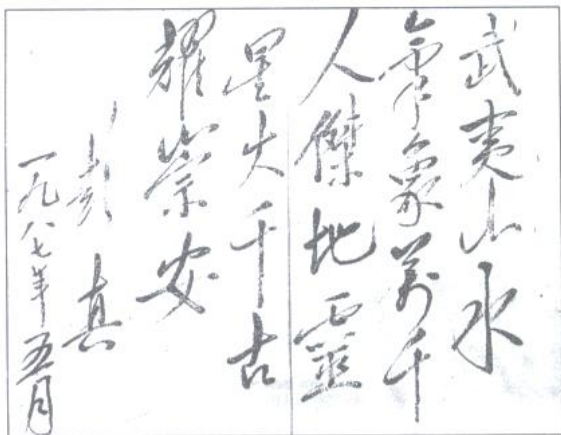 武夷山水
氣象萬千
人傑地靈
星火千古
耀崇安
彭真
一九八七年五月